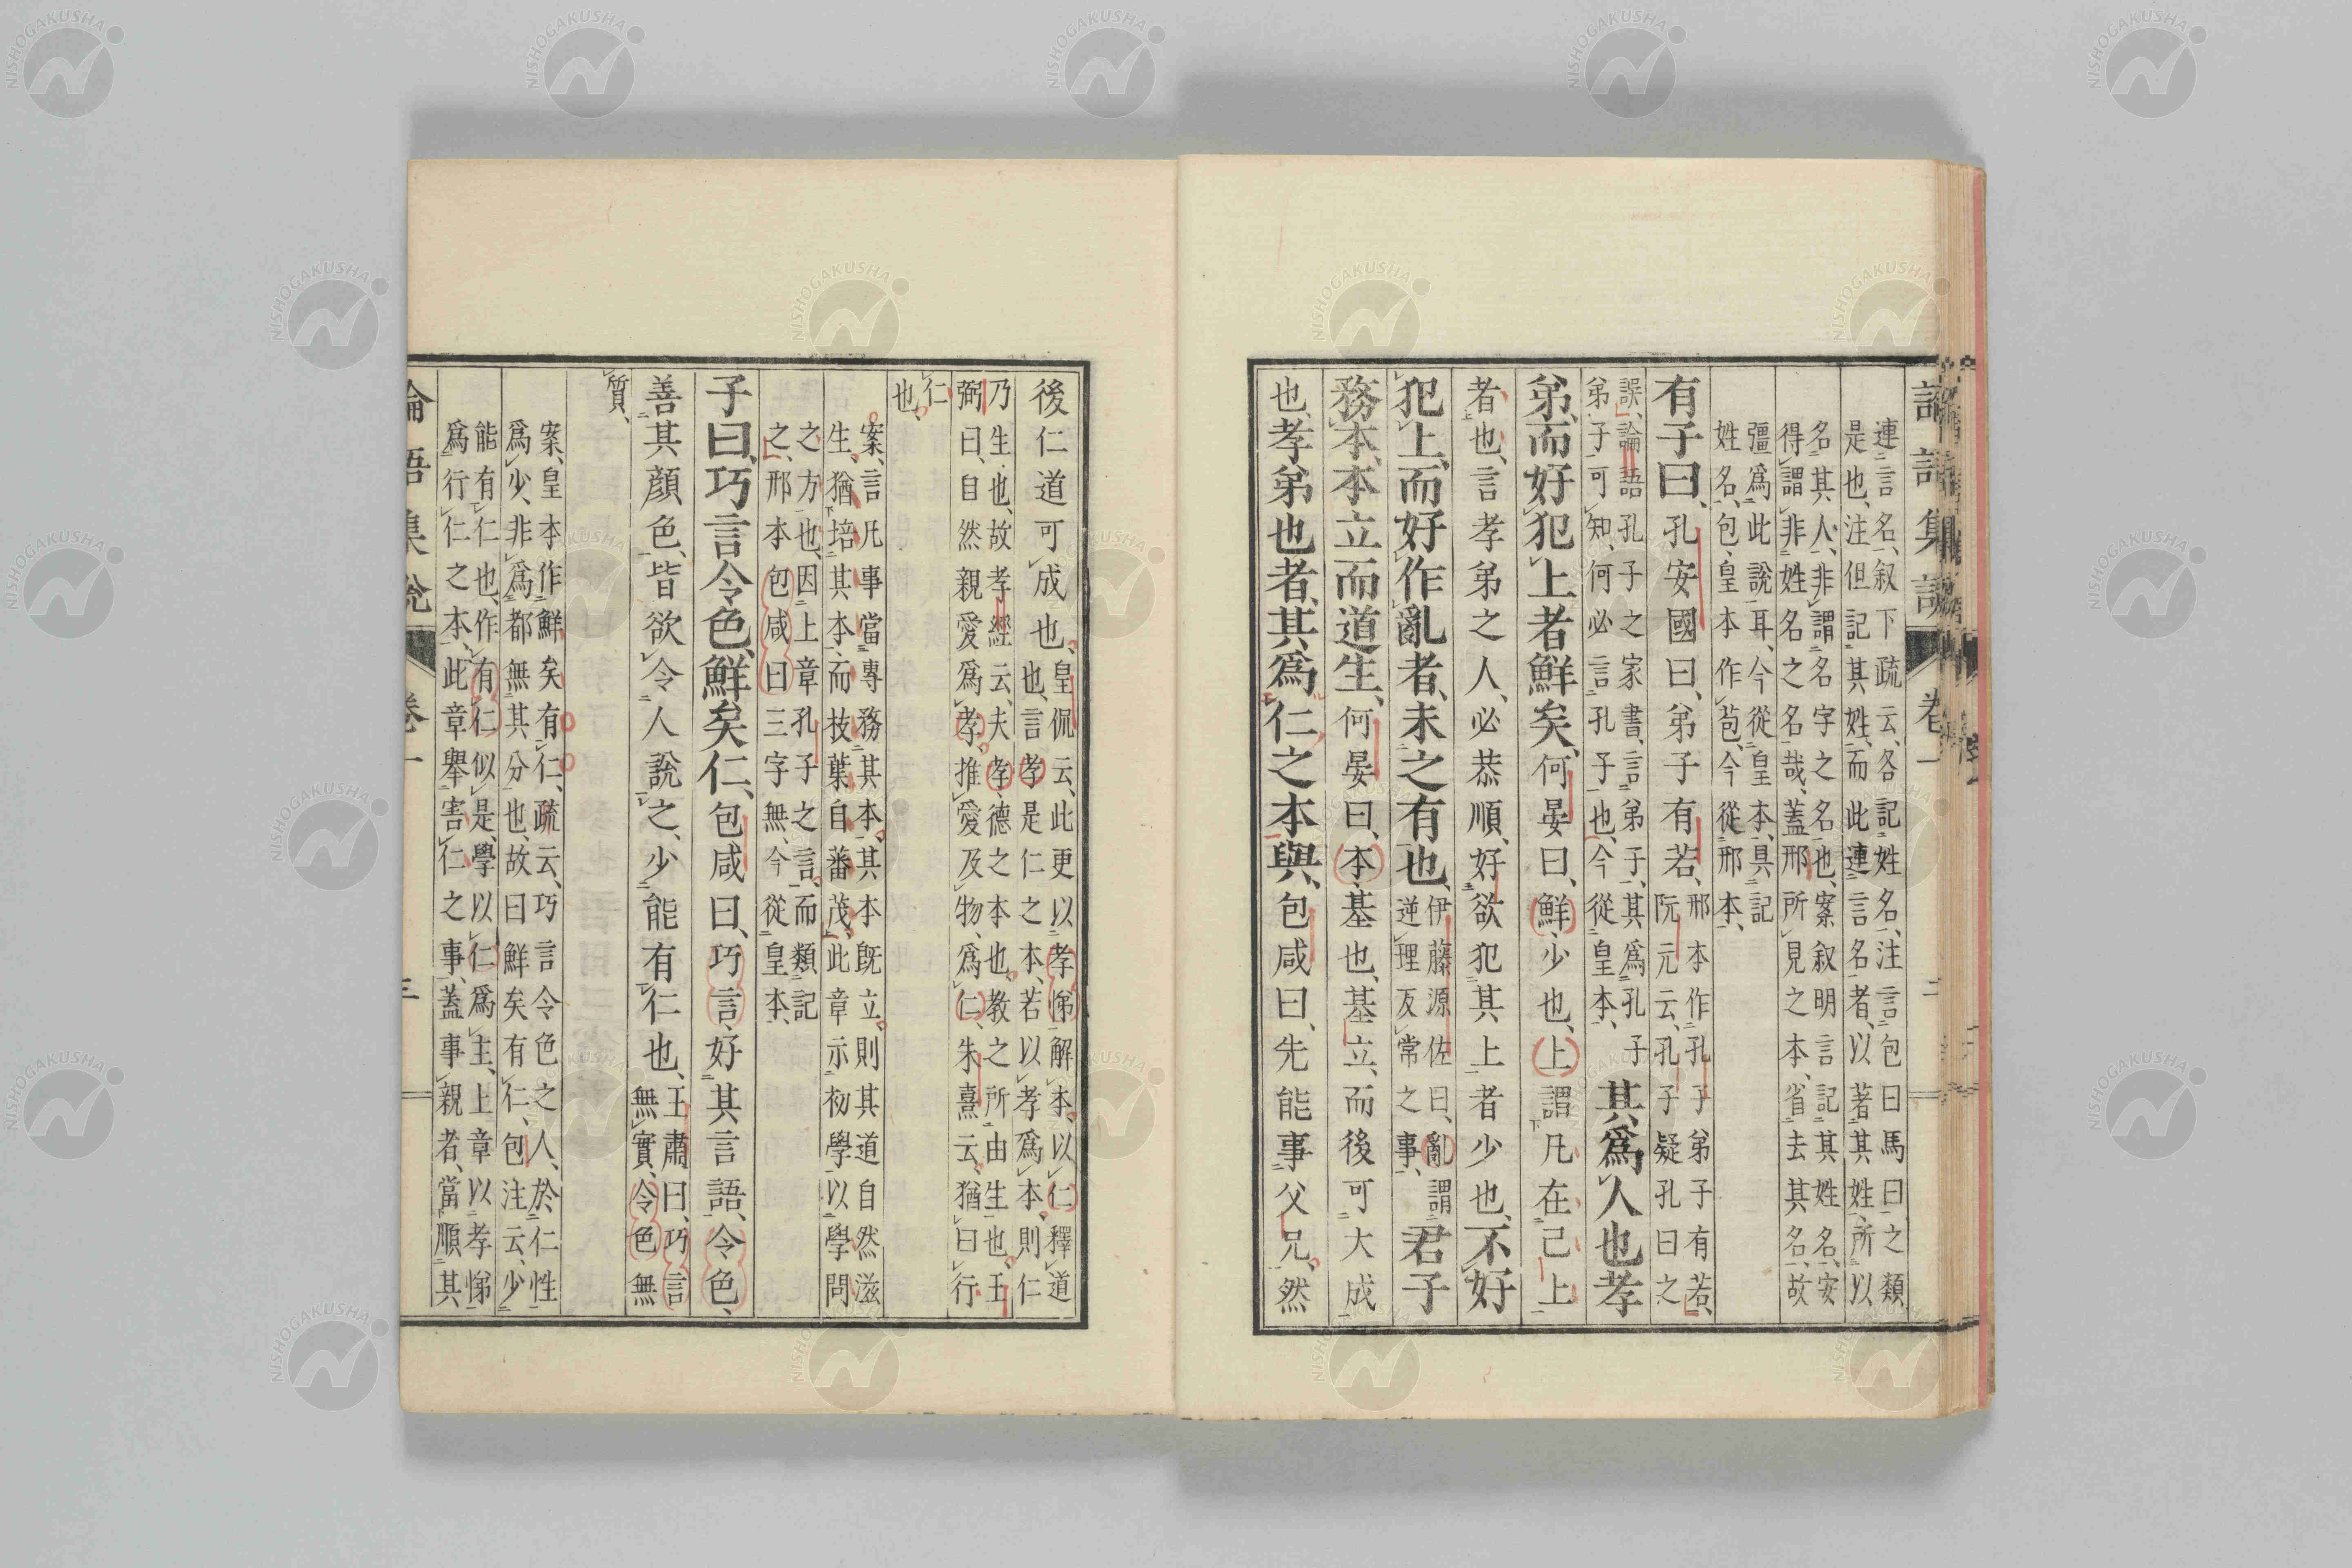 連言名、叙下疏云、各記姓名、注言包曰馬曰之類
是也、注但記其姓、而此連言名者、以著其姓、所以
名其人、非謂名字之名也、案叙明言記其姓名、安
得謂非姓名之名哉、蓋邢所見之本、省去其名、故
彊爲此說耳、今從皇本、具記
姓名、包、皇本作苞、今從邢本、
有子曰、孔安國曰、弟子有若、
邢本作孔子弟子有若、
阮元云、孔子疑孔曰之
誤、論語孔子之家書、言弟子、其爲孔子
弟子可知、何必言孔子也、今從皇本、
其爲人也孝
弟、而好犯上者鮮矣、何晏曰、鮮、少也、上謂凡在己上
者也、言孝弟之人、必恭順、好欲犯其上者少也、不好
犯上、而好作亂者、未之有也、
伊藤源佐曰、亂謂
逆理反常之事、
君子
務本、本立而道生、何晏曰、本、基也、基立、而後可大成
也、孝弟也者、其爲仁之本與、包咸曰、先能事父兄、然
後仁道可成也、
皇侃云、此更以孝悌解本、以仁釋道
也、言孝是仁之本、若以孝爲本、則仁
乃生也、故孝經云、夫孝、德之本也、教之所由生也、王
弼曰、自然親愛爲孝、推愛及物、爲仁、朱熹云、猶曰行
仁
也、
案、言凡事當專務其本、其本既立、則其道自然滋
生、猶培其本、而技葉自蕃茂、此章示初學以學問
之方也、因上章孔子之言、而類記
之、邢本包咸曰三字無、今從皇本、
子曰、巧言令色、鮮矣仁、包咸曰、巧言、好其言語、令色、
善其顏色、皆欲令人說之、少能有仁也、
王肅曰、巧言
無實、令色無
質、
案、皇本作鮮矣有仁、疏云、巧言令色之人、於仁性
爲少、非爲都無其分也、故曰鮮矣有仁、包注云、少
能有仁也、作有仁似是、學以仁爲主、上章以孝悌
爲行仁之本、此章舉害仁之事、蓋事親者、當順其
論語集說
卷一
三